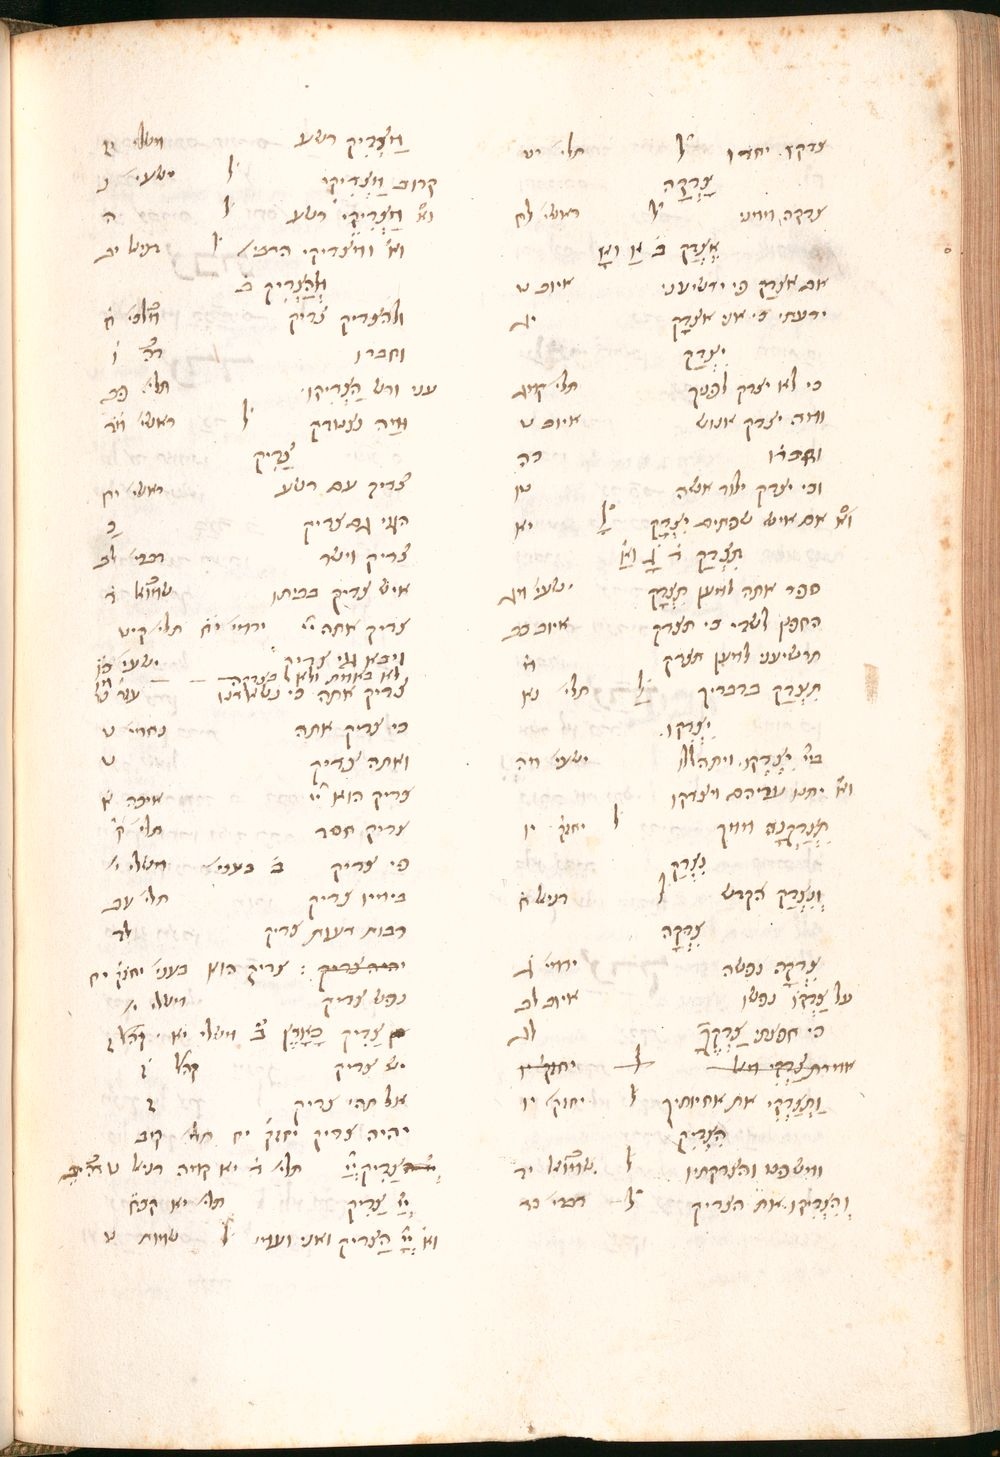 צדקו יחדו ל תלי׳ יט
צָדְקָה
צדקה ממני ל ראשי׳ לח
אֶצְדַּק ב׳ א׳ וא׳
אם אצדק פי ירשיעני איוב ט
ידעתי כי אני אצדק יג
יִצְדַּק
כי לא יצדק לפניך תלי׳ קמג
ומה יצדק אנוש איוב ט
וחברו כה
וכי יצדק ילוד אשה טו
וא׳ אם איש שפתים יִצְדָּק ל יא
תִּצְדַּק ד׳ ג׳ וא׳
ספר אתה למען תִּצְדָּק ישעי׳ מג
החפץ לשדי כי תצדק איוב כב
תרשיעני למען תצדק מ
תִּצְדַּק בדבריך ל תלי׳ נא
יִצְדְּקוּ
ביי׳ יִצְדְּקוּ ויתהללו ישעי׳ מה
וא׳ יתנו עדיהם ויצדקו
תִּצְדַּקְנָה ממך ל יחזק׳ יו
נִצְדַּק
וְנִצְדַּק הקדש ל דניאל ח
צִדְּקָה
צִדְּקָה נפשה ירמי׳ ג
על צַדְּקוֹ נפשו איוב לב
כי חפצתי צַדְּקֶךָּ לג
וַתְּצַדְּקִי את אחיותיך ל יחזק׳ יו
הִצְדִּיק
ומשפט והצדקתיו ל שמואל יד
וְהִצְדִּיקוּ את הצדיק ל דברי׳ כד
מַצְדִּיק רשע משלי יז
קרוב מַצְדִּיקִי ל ישעי׳ נ
וא׳ מַצְדִּיקֵי רשע ל ה
וא׳ ומצדיקי הרבי׳ ל דניאל יב
וּלְהַצְדִּיק ב
ולהצדיק צדיק מלכי׳ ח
וחברו דה׳ ו
עני ורש הַצְדִּיקוּ תלי׳ פב
ומה נצטדק ל ראשי׳ מד
צַדִּיק
צדיק עם רשע ראשי׳ יח
הגוי גם צדיק כ
צדיק וישר דברי׳ לב
איש צדיק בביתו שמואל ד
צדיק אתה יי׳ ירמי׳ יב תלי׳ קיט
ויבא גוי צדיק ישעי׳ כו
לא באמת ולא בצדקה
צדיק אתה כי נשארנו עזרא ט
כי צדיק אתה נחמי׳ ט
ואתה צדיק ט
צדיק הוא יי׳ איכה א
צדיק חסד תלי׳
פי צדיק ב׳ בעני׳ משלי י
בימיו צדיק תלי׳ עב
רבות רעות צדיק לד
צדיק הוא בעני׳ יחזק׳ יח
נפש צדיק משלי י
צדיק בָּאָרֶץ ב׳ משלי יא קהל׳ ז
יש צדיק קהל׳ ז
אל תהי צדיק ז
יהיה צדיק יחזק׳ יח תלי׳ קיב
צַדִּיק יְיָ׳ תלי׳ יא קמה דניאל ט
יְיָ׳ צַדִּיק תלי׳ יא קכט
וא׳ יְיָ׳ הַצַּדִּיק ואני ועמי ל שמות ט